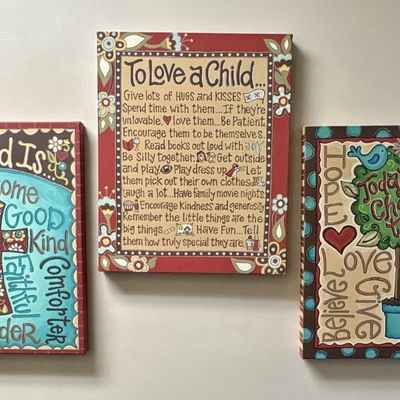 d Is
ome
GOOD
Kind
Comforter
Faithful
der
To Love a Child...
Give lots of HUGS and KISSES
Spend time with them...If they're
unlovable, love them...Be Patient
Encourage them to be themselves.
Read books out loud with JOY
Be silly together. Get outside
and play Play dress up Let
them pick out their own clothes
Laugh a lot...Have family movie nights
Encourage Kindness and generosity
Remember the little things are the
big things... Have Fun...Tell
them how truly special they are
Today
Love
Give
Believe